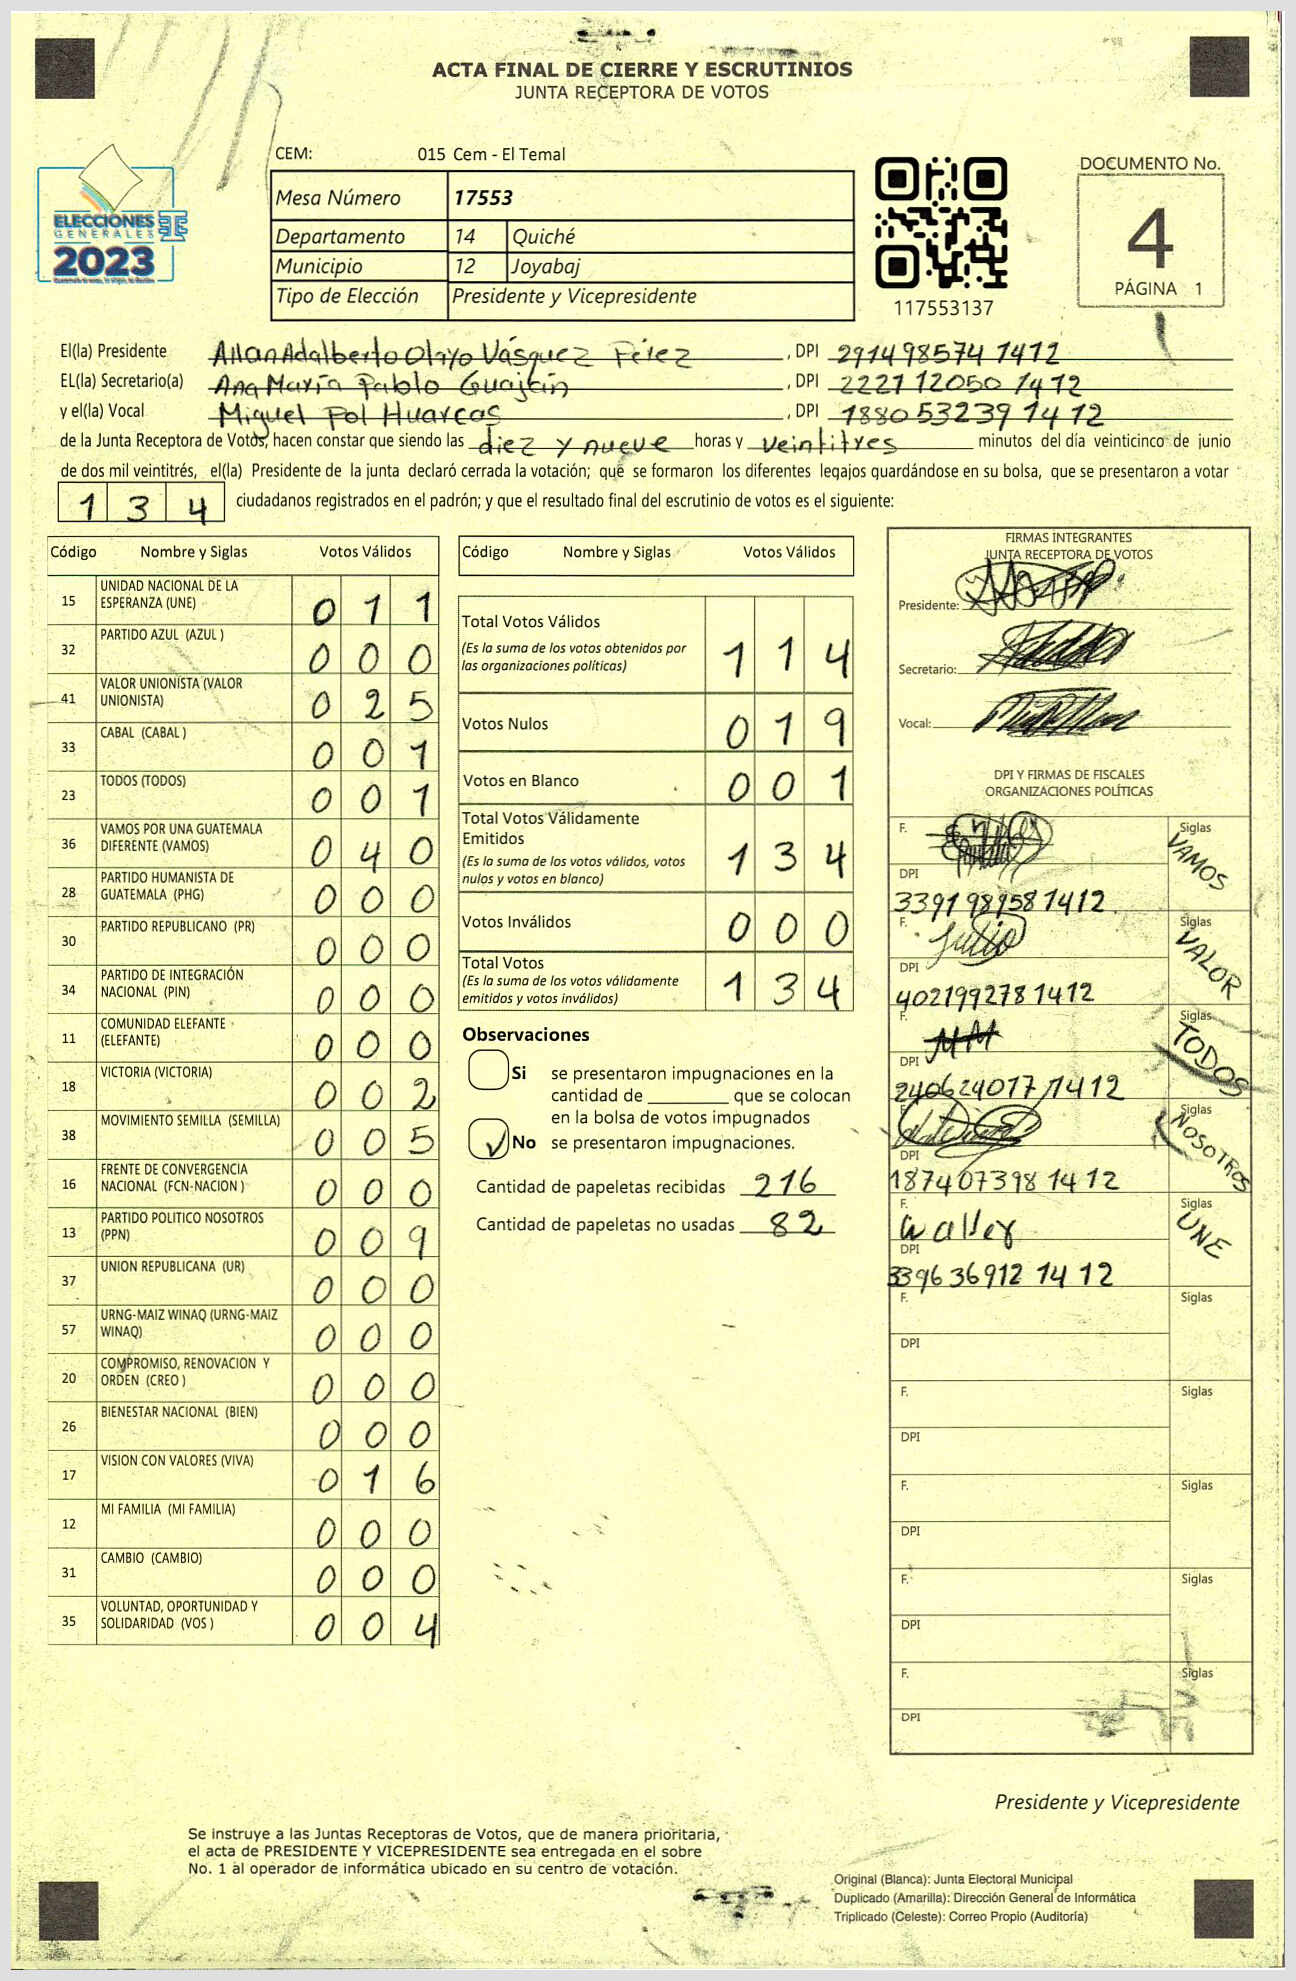 ACTA FINAL DE CIERRE Y ESCRUTINIOS
JUNTA RECEPTORA DE VOTOS
CEM: 015 Cem - El Temal
ELECCIONES
GENERALES
2023
Mesa Número 17553
Departamento 14 Quiché
Municipio 12 Joyabaj
Tipo de Elección Presidente y Vicepresidente
117553137
DOCUMENTO No.
4
PÁGINA 1
El(la) Presidente Allan Adalberto Olayo Vásquez Pérez , DPI 291498574 1412
EL(la) Secretario(a) Ana María Pablo Guaján , DPI 2221 12050 1412
y el(la) Vocal Miguel Pol Huarcas , DPI 1880 53239 1412
de la Junta Receptora de Votos, hacen constar que siendo las diez y nueve horas y veintitres minutos del día veinticinco de junio
de dos mil veintitrés, el(la) Presidente de la junta declaró cerrada la votación; que se formaron los diferentes legajos guardándose en su bolsa, que se presentaron a votar
1 3 4 ciudadanos registrados en el padrón; y que el resultado final del escrutinio de votos es el siguiente:
Código Nombre y Siglas Votos Válidos
15 UNIDAD NACIONAL DE LA ESPERANZA (UNE) 0 1 1
32 PARTIDO AZUL (AZUL ) 0 0 0
41 VALOR UNIONISTA (VALOR UNIONISTA) 0 2 5
33 CABAL (CABAL ) 0 0 1
23 TODOS (TODOS) 0 0 1
36 VAMOS POR UNA GUATEMALA DIFERENTE (VAMOS) 0 4 0
28 PARTIDO HUMANISTA DE GUATEMALA (PHG) 0 0 0
30 PARTIDO REPUBLICANO (PR) 0 0 0
34 PARTIDO DE INTEGRACIÓN NACIONAL (PIN) 0 0 0
11 COMUNIDAD ELEFANTE (ELEFANTE) 0 0 0
18 VICTORIA (VICTORIA) 0 0 2
38 MOVIMIENTO SEMILLA (SEMILLA) 0 0 5
16 FRENTE DE CONVERGENCIA NACIONAL (FCN-NACION ) 0 0 0
13 PARTIDO POLITICO NOSOTROS (PPN) 0 0 9
37 UNION REPUBLICANA (UR) 0 0 0
57 URNG-MAIZ WINAQ (URNG-MAIZ WINAQ) 0 0 0
20 COMPROMISO, RENOVACION Y ORDEN (CREO ) 0 0 0
26 BIENESTAR NACIONAL (BIEN) 0 0 0
17 VISION CON VALORES (VIVA) 0 1 6
12 MI FAMILIA (MI FAMILIA) 0 0 0
31 CAMBIO (CAMBIO) 0 0 0
35 VOLUNTAD, OPORTUNIDAD Y SOLIDARIDAD (VOS ) 0 0 4
Código Nombre y Siglas Votos Válidos
Total Votos Válidos 1 1 4
(Es la suma de los votos obtenidos por
las organizaciones políticas)
Votos Nulos 0 1 9
Votos en Blanco 0 0 1
Total Votos Válidamente
Emitidos 1 3 4
(Es la suma de los votos válidos, votos
nulos y votos en blanco)
Votos Inválidos 0 0 0
Total Votos 1 3 4
(Es la suma de los votos válidamente
emitidos y votos inválidos)
Observaciones
Si se presentaron impugnaciones en la
cantidad de ________ que se colocan
en la bolsa de votos impugnados
No se presentaron impugnaciones.
Cantidad de papeletas recibidas 216
Cantidad de papeletas no usadas 82
FIRMAS INTEGRANTES
JUNTA RECEPTORA DE VOTOS
Presidente:
Secretario:
Vocal:
DPI Y FIRMAS DE FISCALES
ORGANIZACIONES POLÍTICAS
F. Siglas VAMOS
DPI
3391 98958 1412
F. Julio Siglas VALOR
DPI
402199278 1412
F. Siglas TODOS
DPI
240624077 1412
F. Siglas NOSOTROS
DPI
187407398 1412
F. Walter Siglas UNE
DPI
339636912 1412
F. Siglas
DPI
F. Siglas
DPI
F. Siglas
DPI
F. Siglas
DPI
F. Siglas
DPI
Presidente y Vicepresidente
Se instruye a las Juntas Receptoras de Votos, que de manera prioritaria,
el acta de PRESIDENTE Y VICEPRESIDENTE sea entregada en el sobre
No. 1 al operador de informática ubicado en su centro de votación.
Original (Blanca): Junta Electoral Municipal
Duplicado (Amarilla): Dirección General de Informática
Triplicado (Celeste): Correo Propio (Auditoría)